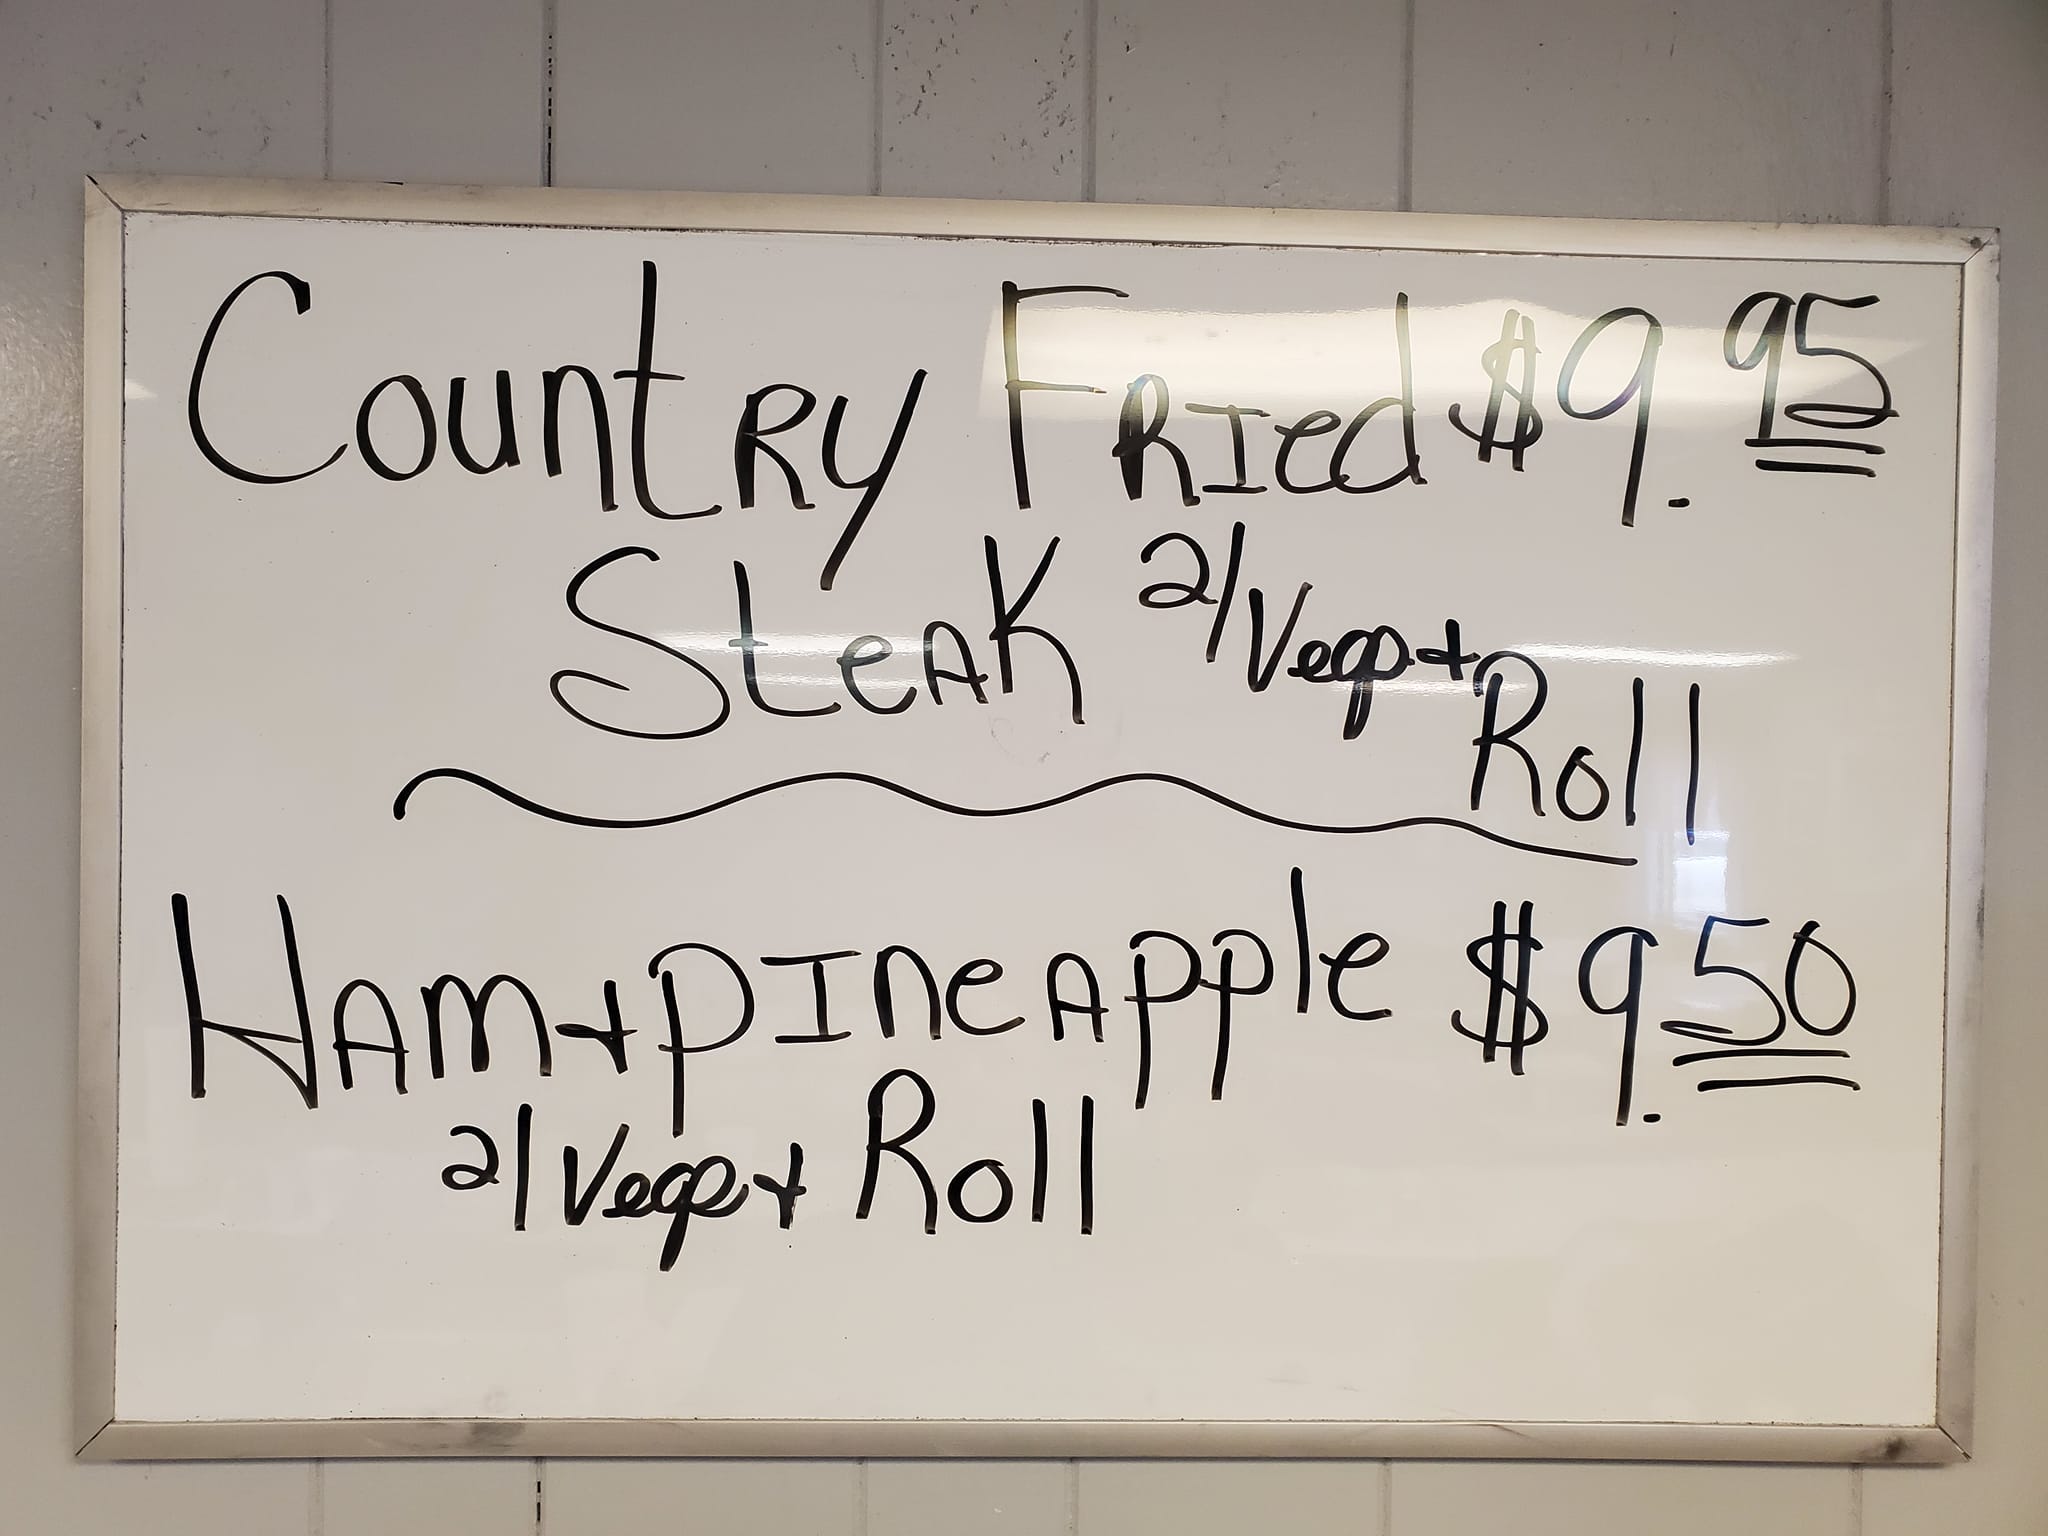 Country Fried $9.95
Steak 2/Vegs + Roll
Ham + Pineapple $9.50
2/Vegs + Roll